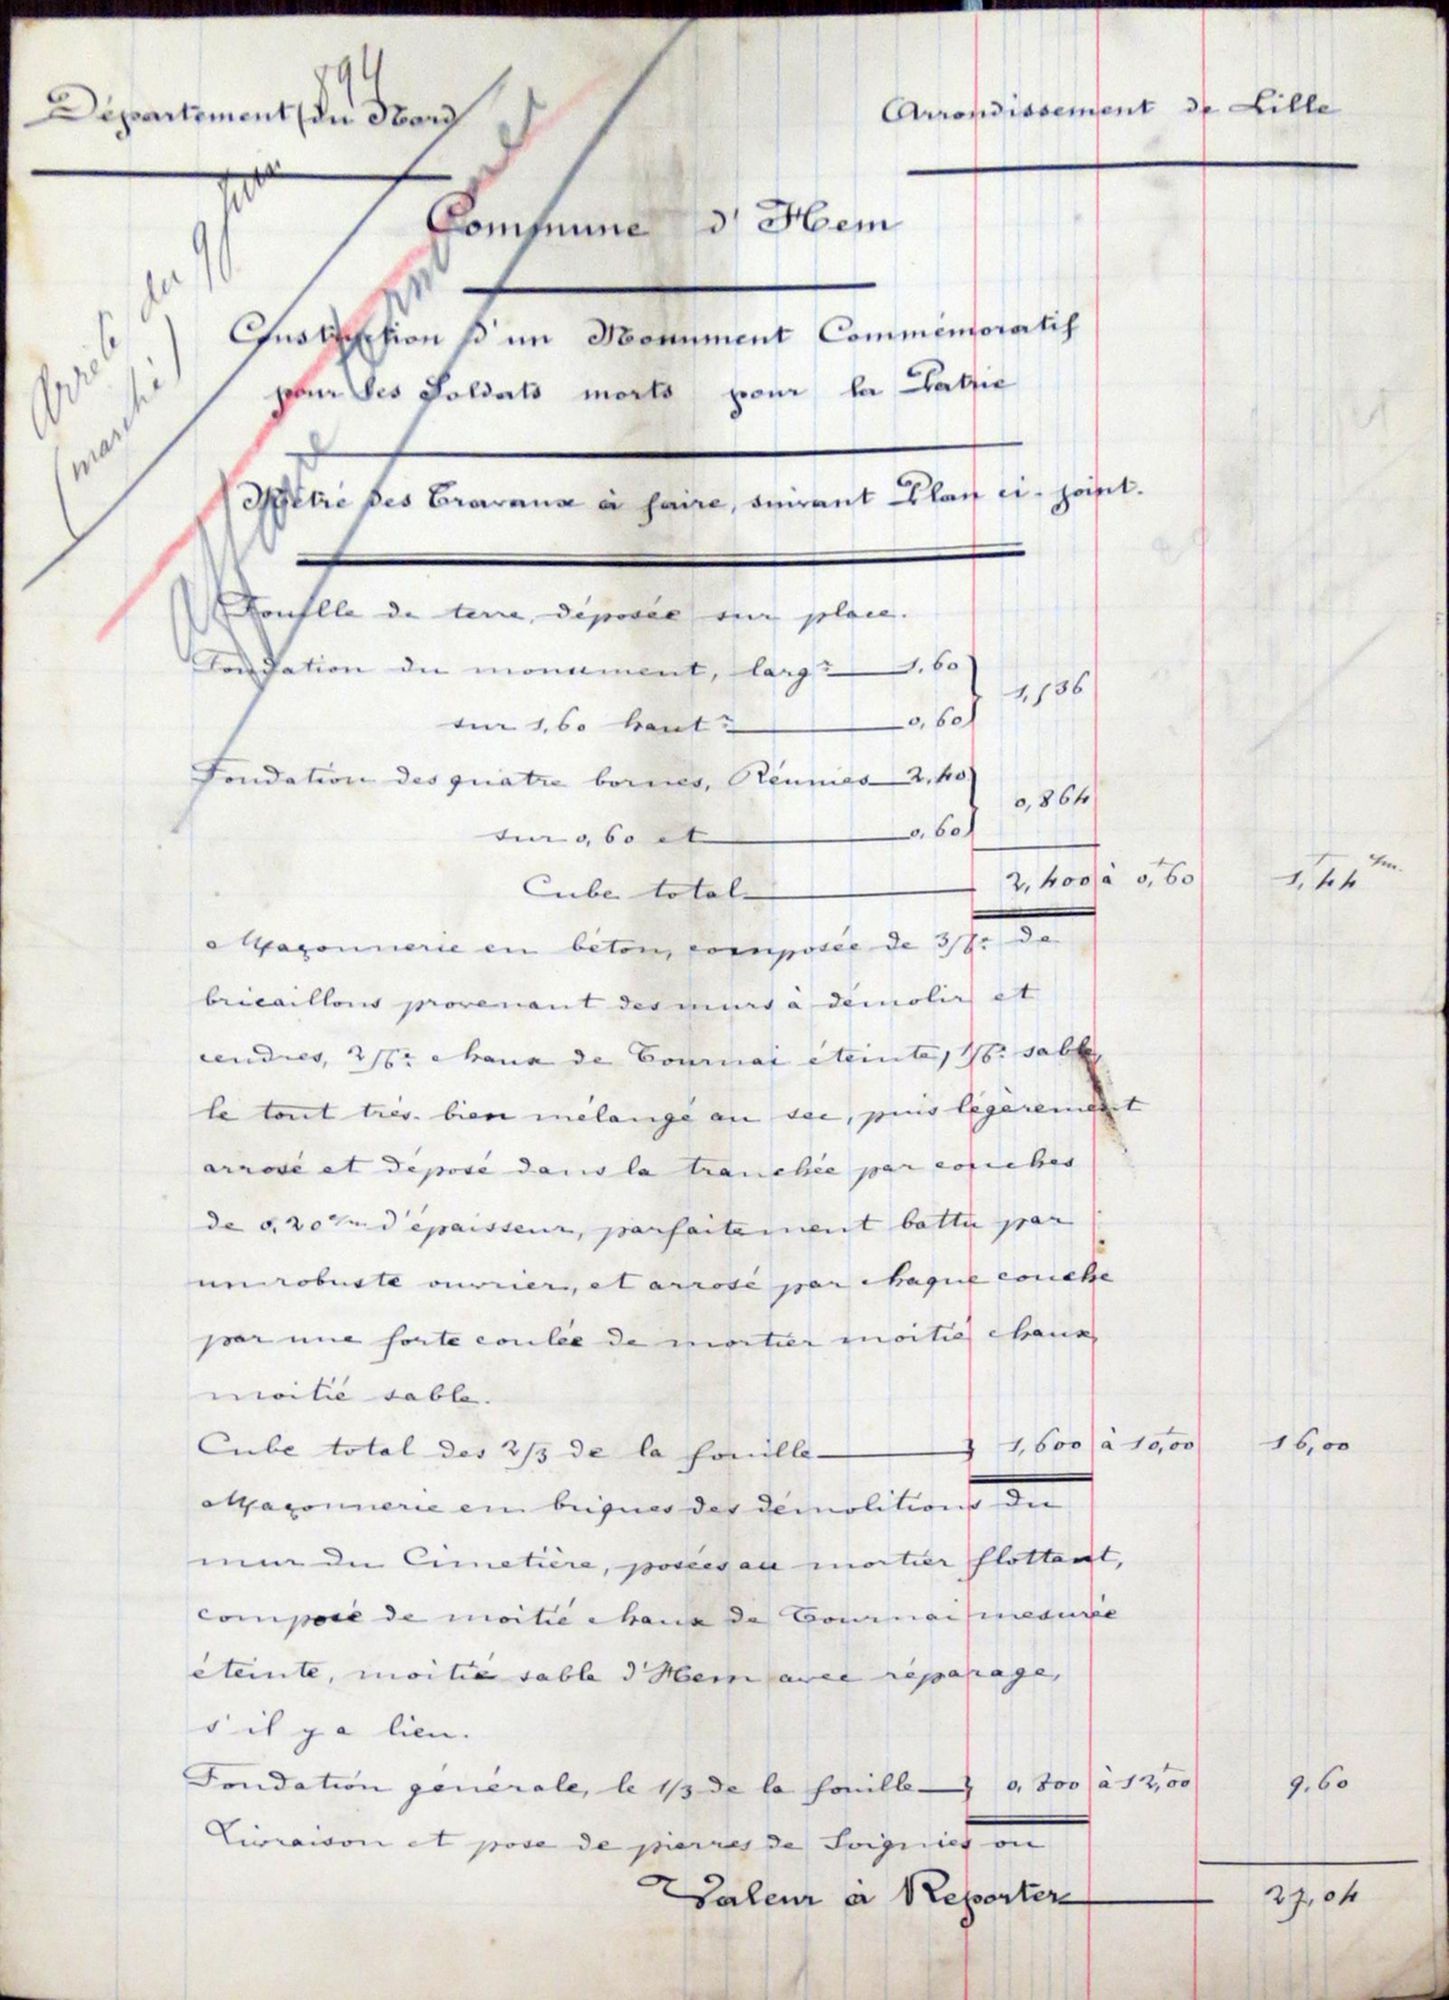 894
Département du Nord
Arrondissement de Lille
Arrêté du 9 Juin
(marché)
Affaire
Commune d'Hem
Construction d'un Monument Commémoratif
pour les Soldats morts pour la Patrie
Métré des Travaux à faire, suivant Plan ci-joint.
Fouille de terre, déposée sur place.
Fondation du monument, largr 1,60
1,536
sur 1,60 hautr 0,60
Fondation des quatre bornes, Réunies 2,40
0,864
sur 0,60 et 0,60
Cube total 2,400 à 0f,60 1f,44
Maçonnerie en béton, composée de 3/6e de
bricaillons provenant des murs à démolir et
cendres, 2/6e chaux de Tournai éteinte, 1/6e sable,
le tout très bien mélangé au sec, puis légèrement
arrosé et déposé dans la tranchée par couches
de 0,20 c/m d'épaisseur, parfaitement battu par
un robuste ouvrier, et arrosé par chaque couche
par une forte coulée de mortier moitié chaux,
moitié sable.
Cube total des 2/3 de la fouille 1,600 à 10f,00 16,00
Maçonnerie en briques des démolitions du
mur du Cimetière, posées au mortier flottant,
composé de moitié chaux de Tournai mesurée
éteinte, moitié sable d'Hem avec réparage,
s'il y a lieu.
Fondation générale, le 1/3 de la fouille 0,800 à 12f,00 9,60
Livraison et pose de pierres de Soignies ou
Valeur à Reporter 27,04